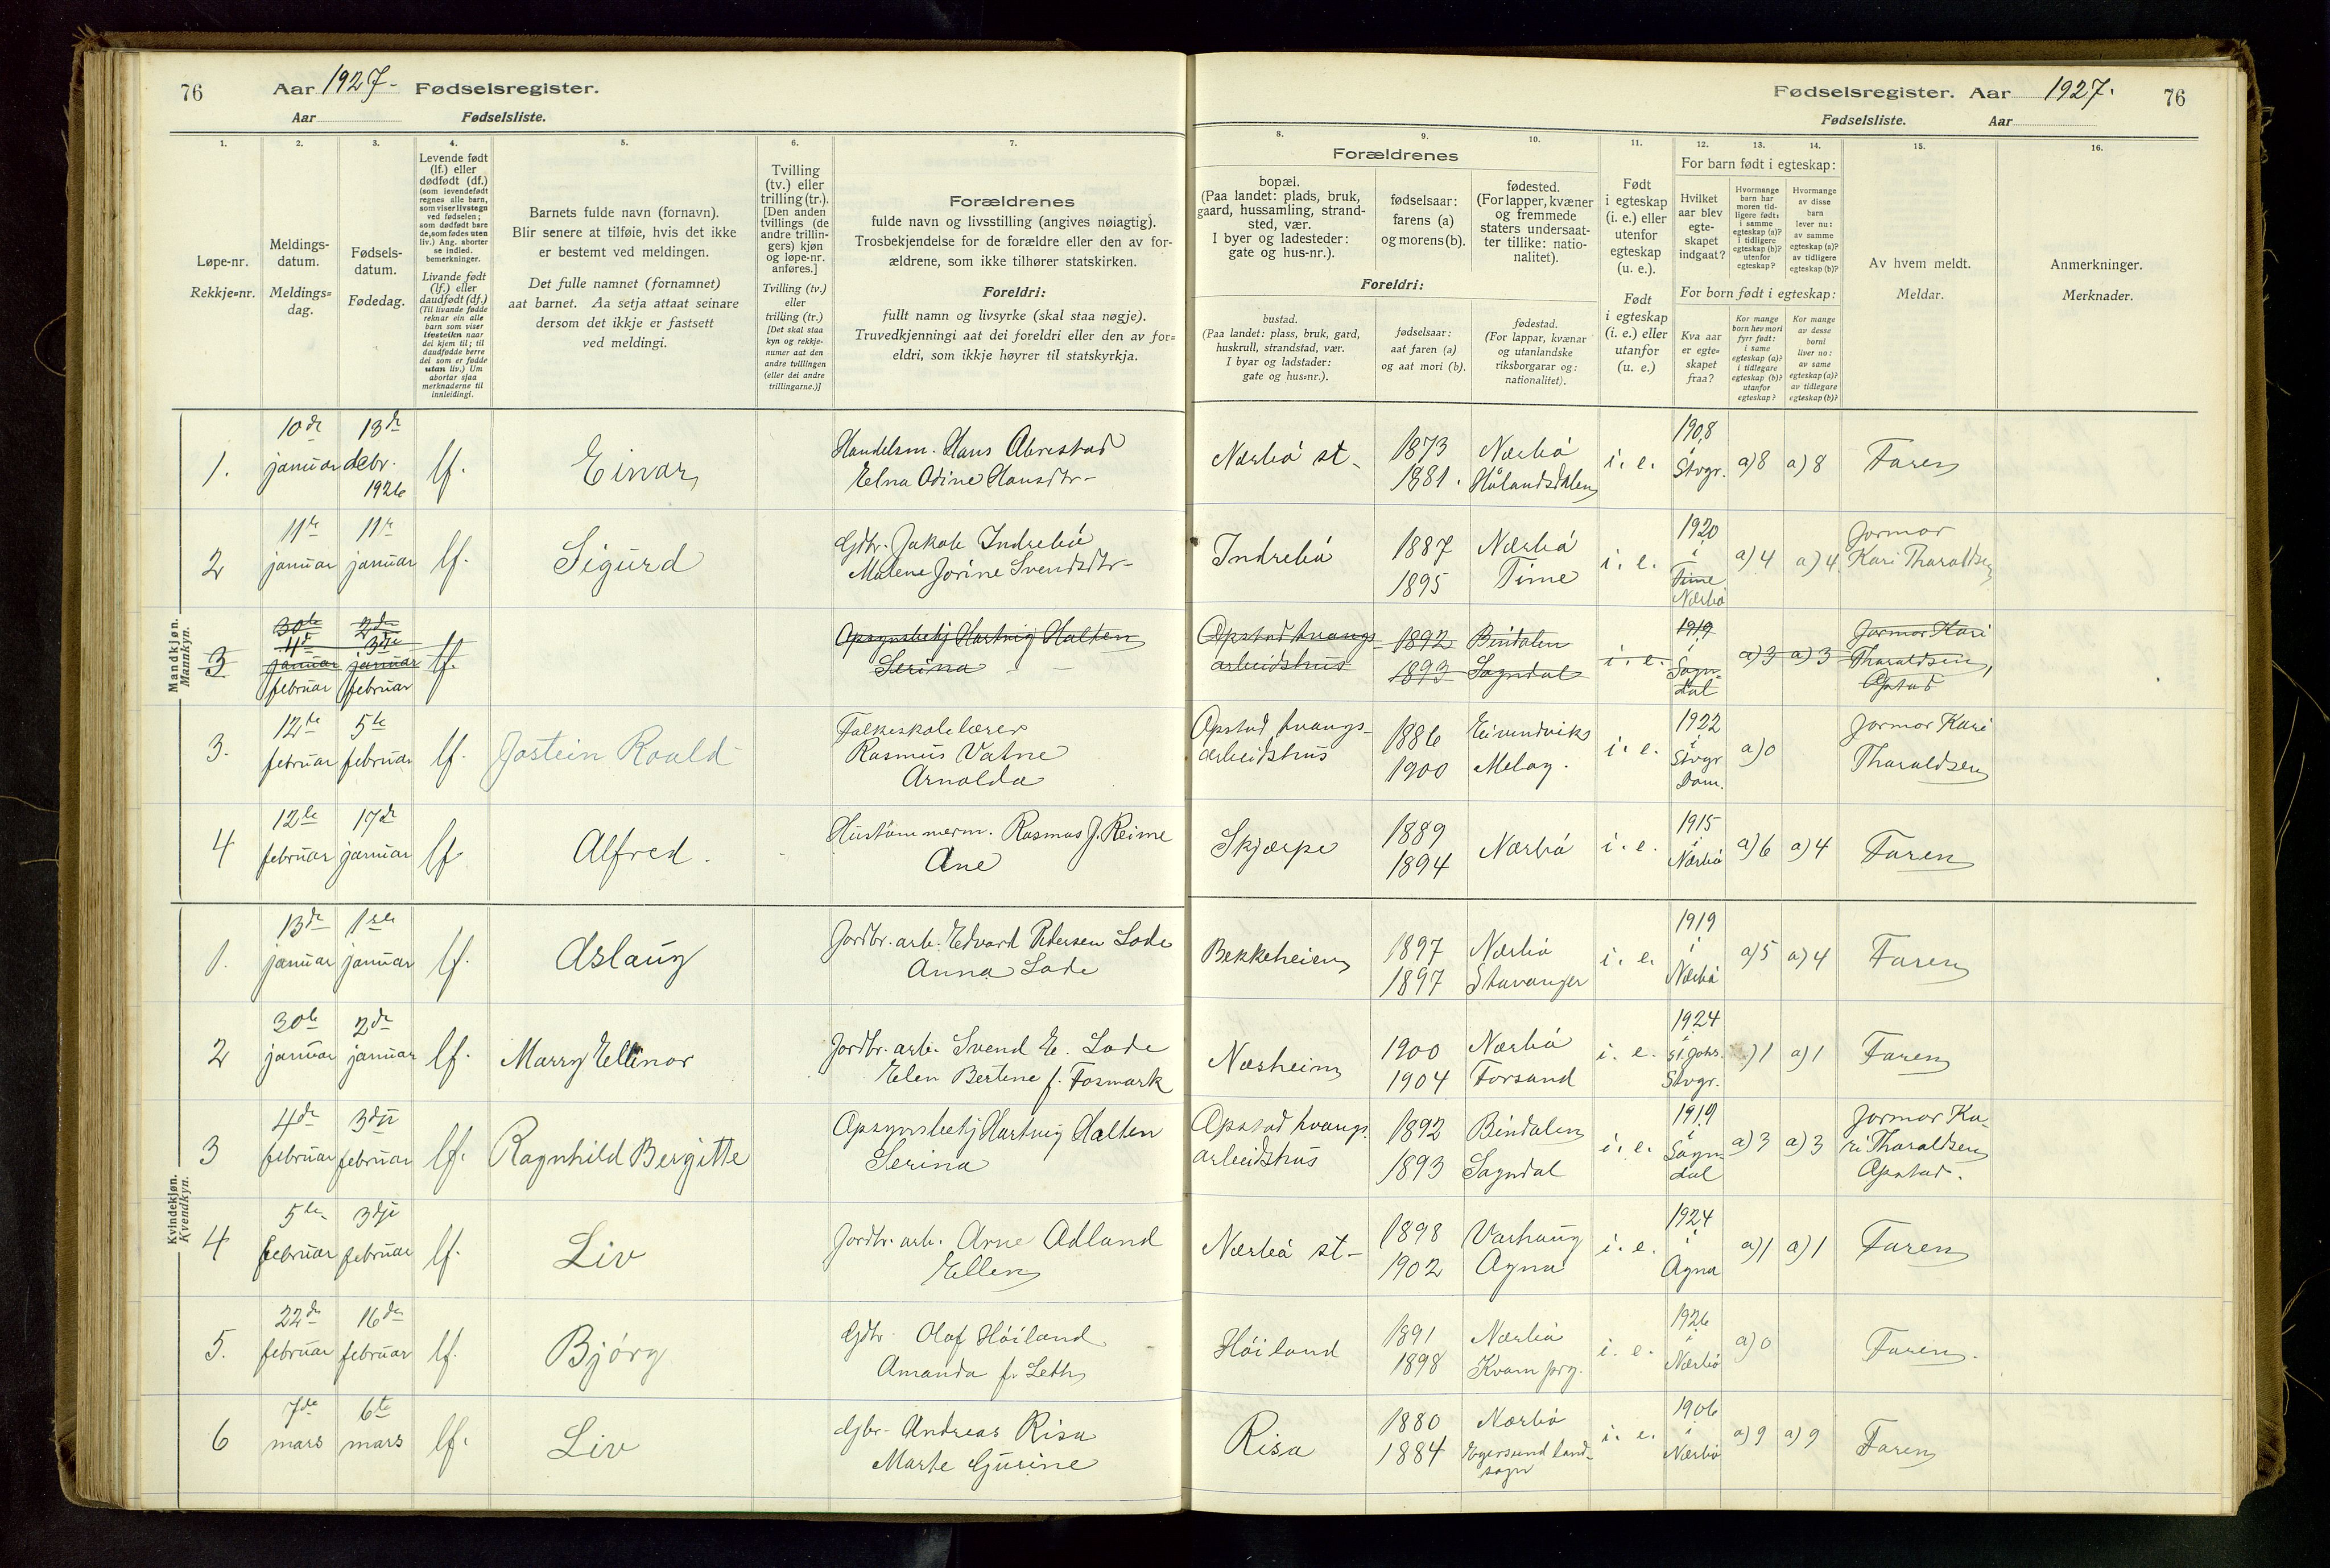 76
Aar 1927- Fødselsregister.
Aar Fødselsliste.
Fødselsregister. Aar 1927.
76
Fødselsliste. Aar
1.
Løpe-nr.
Rekkje=nr.
2.
Meldings-
datum.
Meldings=
dag.
3.
Fødsels-
datum.
Fødedag.
4.
Levende født
(lf.) eller
dødfødt (df.)
(som levendefødt
regnes alle barn,
som viser livstegn
ved fødselen;
som dødfødt bare
de, som fødes uten
liv.) Ang. aborter
se indled.
bemerkninger.
Livande født
(lf.) eller
daudfødt (df.)
(Til livande fødde
reknar ein alle
barn som viser
livsteikn naar
dei kjem til; til
daudfødde berre
dei som er fødde
utan liv.) Um
abortar sjaa
merknaderne til
innleidingi.
5.
Barnets fulde navn (fornavn).
Blir senere at tilføie, hvis det ikke
er bestemt ved meldingen.
Det fulle namnet (fornamnet)
aat barnet. Aa setja attaat seinare
dersom det ikkje er fastsett
ved meldingi.
6.
Tvilling
(tv.) eller
trilling (tr.).
[Den anden
tvillings (de
andre trillin-
gers) kjøn
og løpe-nr.
anføres.]
Tvilling (tv.)
eller
trilling (tr.)
[Det skal staa
kyn og rekkje-
numer aat den
andre tvillingen
(eller dei andre
trillingarne.)]
7.
Forældrenes
fulde navn og livsstilling (angives nøiagtig).
Trosbekjendelse for de forældre eller den av for-
ældrene, som ikke tilhører statskirken.
Foreldri:
fullt namn og livsyrke (skal staa nøgje).
Truvedkjenningi aat dei foreldri eller den av for=
eldri, som ikkje høyrer til statskyrkja.
8.
Forældrenes
bopæl.
(Paa landet: plads, bruk,
gaard, hussamling, strand-
sted, vær.
I byer og ladesteder:
gate og hus-nr.).
Foreldri:
bustad.
(Paa landet: plass, bruk, gard,
huskrull, strandstad, vær.
I byar og ladstader:
gate og hus=nr.).
9.
fødselsaar:
farens (a)
og morens (b).
fødselsaar:
aat faren (a)
og aat mori (b).
10.
fødested.
(For lapper, kvæner
og fremmede
staters undersaat-
ter tillike: natio-
nalitet).
fødestad.
(For lappar, kvænar
og utanlandske
riksborgarar og:
nationalitet).
11.
Født
i egteskap
(i. e.) eller
utenfor
egteskap
(u. e.).
Født
i egteskap
(i. e.) eller
utanfor
(u. e.)
12.
For barn født i egteskap:
Hvilket
aar blev
egte-
skapet
indgaat?
For born født i egteskap:
Kva aar
er egte=
skapet
fraa?
13.
Hvormange
barn har
moren tid-
ligere født:
i samme
egteskap (a)?
i tidligere
egteskap (b)?
utenfor
egteskap?
Kor mange
born hev mori
fyrr født:
i same
egteskap (a)?
i tidlegare
egteskap (b)?
utanfor
egteskap?
14.
Hvormange
av disse
barn
lever nu:
av samme
egteskap (a)?
av tidligere
egteskap (b)?
Kor mange
av desse
borni
liver no:
av same
egteskap (a)?
av tidlegare
egteskap (b)?
15.
Av hvem meldt.
Meldar.
16.
Anmerkninger.
Merknader.
Mandkjøn.
Mannkyn.
1. 10de januar 13de debr. 1926 lf. Einar
Handelsm. Hans Obrestad
Elna Odine Hansdtr-
Nærbø st- 1873 1881. Nærbø Hålandsdalen i. e. 1908 i Stvgr. a)8 a)8 Faren
2 11te januar 11te januar lf. Sigurd
Gdbr. Jakob Indrebø
Malene Jorine Svendsdtr-
Indrebø 1887 1895 Nærbø Time i. e. 1920 i Time Nærbø a)4 a)4 Jormor Kari Tharaldsen
3 30te 4de januar februar 2den 3dje januar februar lf.
Opsynsbetj Hartvig Halten
Serina
Opstad tvangs- arbeidshus 1892 1893 Bindalen Sogndal i. e. 1919 i Sogn- dal a)3 a)3 Jormor Kari Tharaldsen, Opstad
3. 12te februar 5te februar lf. Jostein Roald
Folkeskolelærer
Rasmus Vatne
Arnolda
Opstad tvangs- arbeidshus 1886 1900 Eivindviks Meløy. i. e. 1922 i Stvgr Dom. a)0 Jormor Kari Tharaldsen
4 12te februar 17de januar lf Alfred.
Hustømmerm. Rasmus J. Reime
Ane
Skjærpe 1889 1894 Nærbø i. e. 1915 i Nærbø a)6 a)4 Faren
Kvindekjøn.
Kvendkyn.
1. 13de januar 1ste januar lf. Aslaug
Jordbr. arb. Edvard Pedersen Lode
Anna Lode
Bekkeheien 1897 1897 Nærbø Stavanger i. e. 1919 i Nærbø a)5 a)4 Faren
2 30te januar 2den januar lf. Marry Ellinor
Jordbr. arb. Svend E. Lode
Elen Bertine f. Fosmark
Næsheim 1900 1904 Nærbø Forsand i. e. 1924 i St. Johs. Stvgr. a)1 a)1 Faren
3 4de februar 3dje februar lf. Ragnhild Bergitte
Opsynsbetj Hartvig Halten
Serina
Opstad tvangs. arbeidshus 1892 1893 Bindalen Sogndal i. e. 1919 i Sogn- dal a)3 a)3 Jormor Ka- ri Tharaldsen Opstad.
4 5te februar 3dje februar lf. Liv
Jordbr. arb. Arne Adland
Ellen
Nærbø st- 1898 1902 Varhaug Ogna i. e. 1924 i Ogna a)1 a)1 Faren
5. 22de februar 16de februar lf. Bjørg
Gdbr. Olaf Høiland
Amanda f. Leth
Høiland 1891 1898 Nærbø Kvam prg. i. e. 1926 i Nærbø a)0 Faren.
6 7de mars 6te mars lf. Liv
Gbr- Andreas Risa
Marte Gurine
Risa 1880 1884 Nærbø Egersund land- sogn i. e. 1906 i Nærbø a)9 a)9 Faren